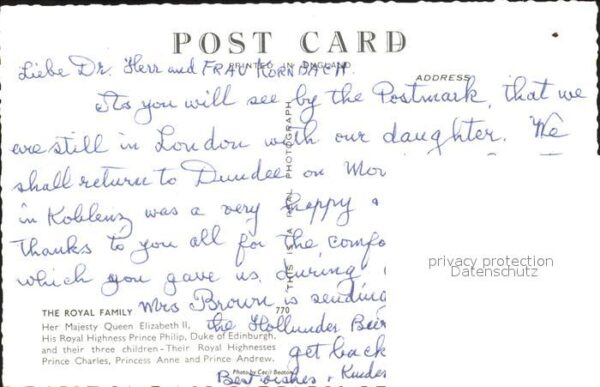 POST CARD
PRINTED IN ENGLAND
Liebe Dr. Herr and FRAU KORNBACH.
ADDRESS
As you will see by the Postmark, that we
are still in London with our daughter. We
shall return to Dundee on Mor
in Koblenz was a very happy
Thanks to you all for the comfo
which you gave us during
Mrs Brown is sending
the Hollunder Beer
get back
Best wishes +
THIS IS A REAL PHOTOGRAPH
privacy protection
Datenschutz
THE ROYAL FAMILY 770
Her Majesty Queen Elizabeth II,
His Royal Highness Prince Philip, Duke of Edinburgh,
and their three children - Their Royal Highnesses
Prince Charles, Princess Anne and Prince Andrew.
Photo by Cecil Beaton